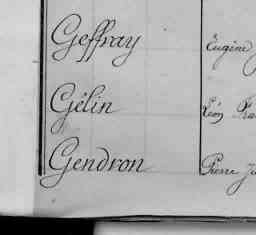 Geffray Eugène
Gélin Léon
Gendron Pierre